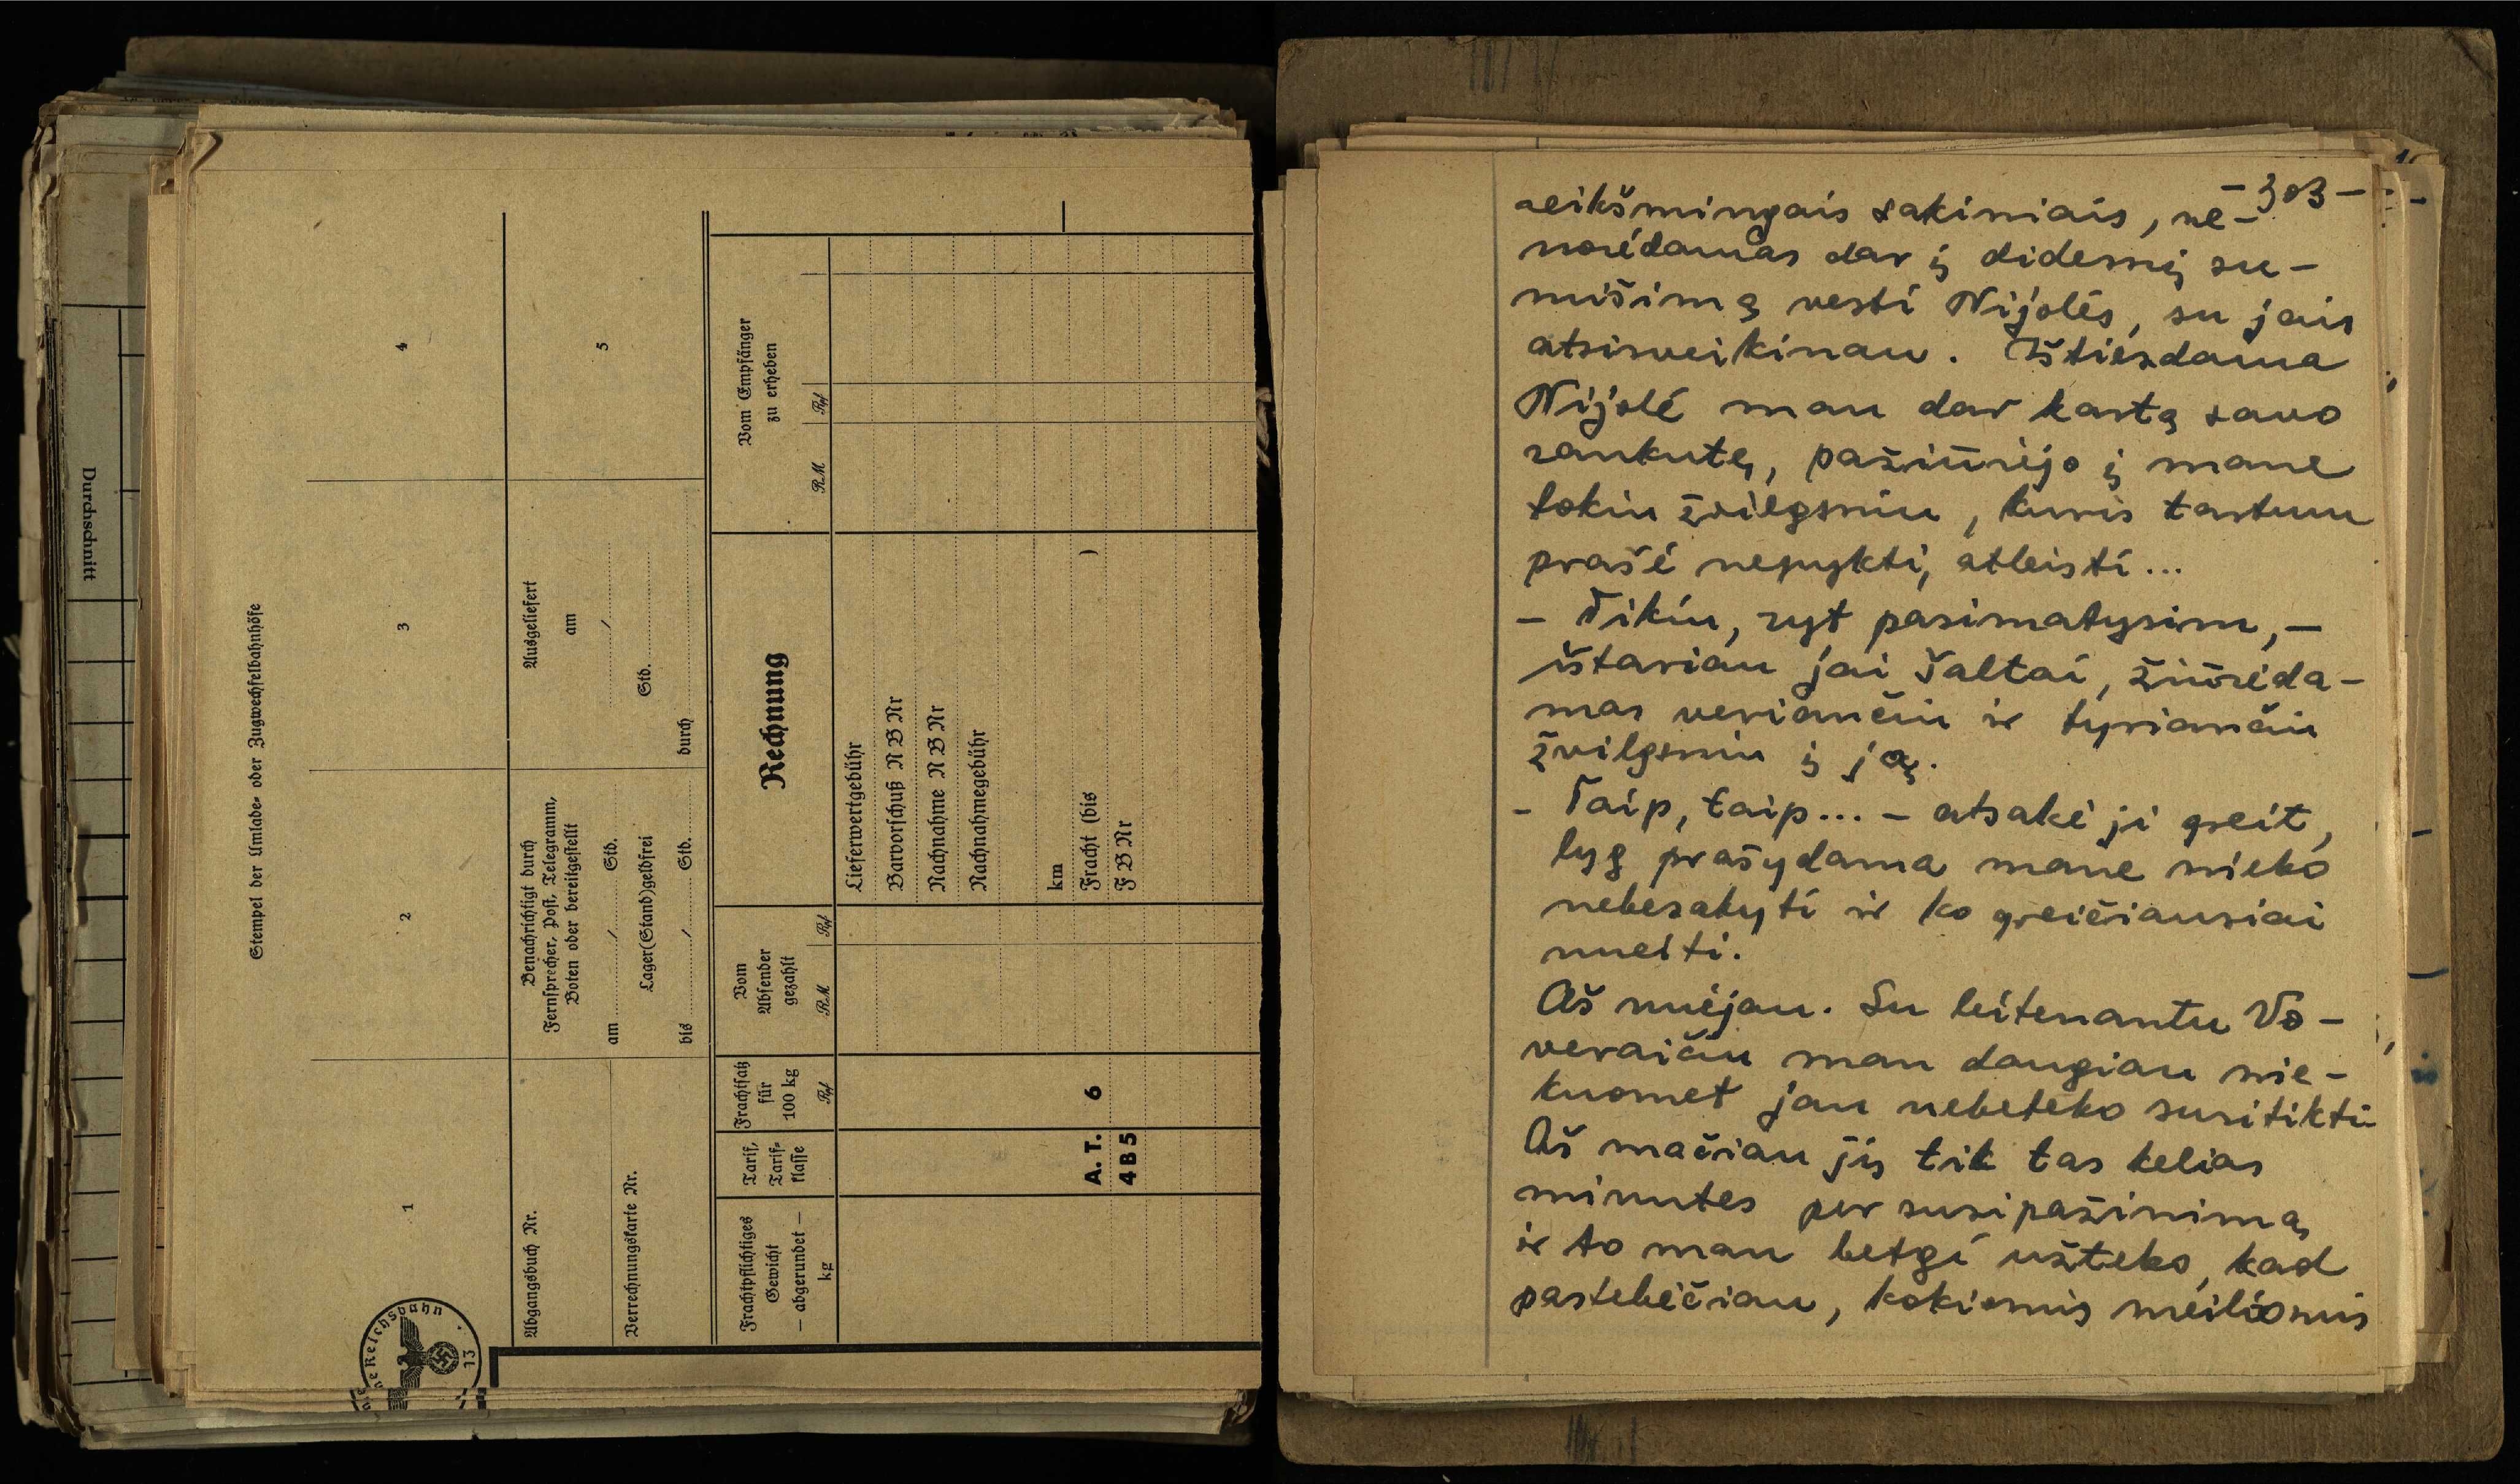 Durchschnitt
Stempel der Umlade- oder Zugwechselbahnhöfe
1
2
3
4
Abgangsbuch Nr.
Verrechnungskarte Nr.
Benachrichtigt durch
Fernsprecher, Post, Telegramm,
Boten oder bereitgestellt
am / Std.
Lager(Stand)geldfrei
bis / Std.
Ausgeliefert
am
/
Std.
durch
5
Frachtpflichtiges
Gewicht
— abgerundet —
kg
Tarif,
Tarif-
klasse
Frachtsatz
für
100 kg
Rpf
Vom
Absender
gezahlt
RM Rpf
Rechnung
Vom Empfänger
zu erheben
RM Rpf
Lieferwertgebühr
Barvorschuß N B Nr
Nachnahme N B Nr
Nachnahmegebühr
km
A. T. 6 Fracht (bis )
4 B 5 F B Nr
13
- 303 -
reikšmingais sakiniais, ne-
norėdamas dar į didesnį su-
mišimą vesti Nijolės, su jais
atsisveikinau. Ištiesdama
Nijolė man dar kartą savo
rankutę, pažiūrėjo į mane
tokiu žvilgsniu, kuris tartum
prašė nepykti, atleisti...
- Tikiu, ryt pasimatysim, -
ištariau jai šaltai, žiūrėda-
mas veriančiu ir tyriančiu
žvilgsniu į ją.
- Taip, taip... - atsakė ji greit,
lyg prašydama mane nieko
nebesakyti ir ko greičiausiai
nueiti.
Aš nuėjau. Su leitenantu Vo-
veraičiu man daugiau nie-
kuomet jau nebeteko susitikti.
Aš mačiau jį tik tas kelias
minutes per susipažinimą
ir to man betgi užteko, kad
pastebėčiau, kokiomis meiliomis